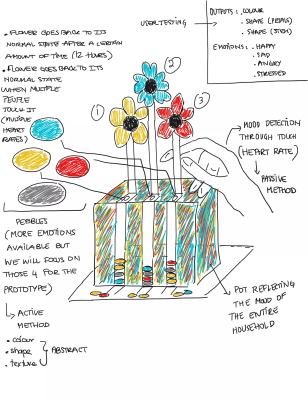 • FLOWER GOES BACK TO ITS
NORMAL STATE AFTER A CERTAIN
AMOUNT OF TIME (12 HOURS)
• FLOWER GOES BACK TO ITS
NORMAL STATE
WHEN MULTIPLE
PEOPLE
TOUCH IT
(MULTIPLE
HEART
RATES)
USER TESTING
OUTPUTS: • COLOUR
• SHAPE (PETALS)
• SHAPE (STEM)
EMOTIONS: • HAPPY
• SAD
• ANGRY
• STRESSED
1
2
3
MOOD DETECTION
THROUGH TOUCH
(HEART RATE)
PASSIVE
METHOD
PEBBLES
(MORE EMOTIONS
AVAILABLE BUT
WE WILL FOCUS ON
THOSE 4 FOR THE
PROTOTYPE)
ACTIVE
METHOD
• colour
• shape
• texture
ABSTRACT
POT REFLECTING
THE MOOD OF
THE ENTIRE
HOUSEHOLD.